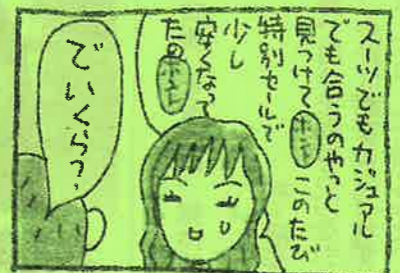 スーツでもカジュアル
でも合うのやっと
見つけて ホント このたび
特別セールで
少し
安くなって
たの ホント
でいくら?